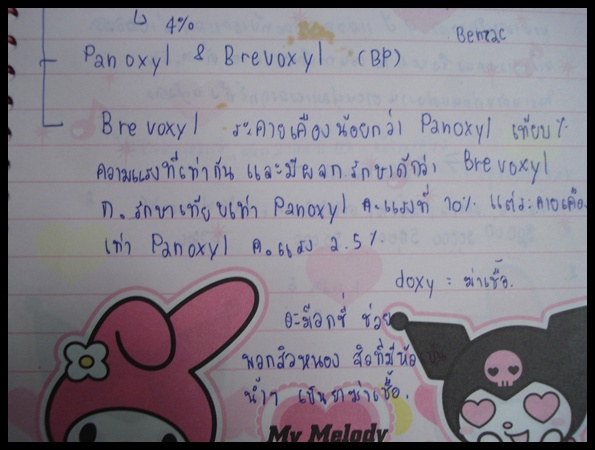 ↳ 4%
Benzac
Panoxyl & Brevoxyl (BP)
Brevoxyl ระคายเคืองน้อยกว่า Panoxyl เทียบ %
ความแรงที่เท่ากัน และมีผลก.รักษาดีกว่า Brevoxyl
ก. รักษาเทียบเท่า Panoxyl ค.แรงที่ 10% แต่ระคายเคือง
เท่า Panoxyl ค.แรง 2.5%
doxy = ฆ่าเชื้อ.
อะม็อกซี่ ช่วย
พวกสิวหนอง สิวที่มีหัว
น้ำๆ เป็นยาฆ่าเชื้อ.
My Melody